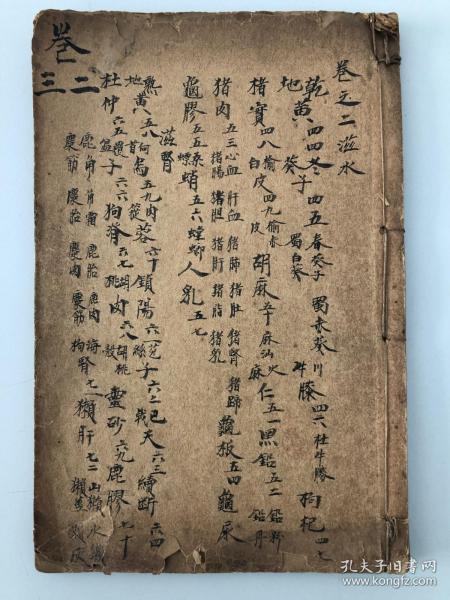 卷之二 滋水
乾地黄 四四 冬葵子 四五 春葵子 蜀白葵 蜀赤葵 川牛膝 四六 杜牛膝 枸杞 四七
楮實 四八 楮白皮 四九 胡麻 五十 麻油 火麻仁 五一 黑鉛 五二 鉛粉 鉛丹
猪肉 五三 心血 肝血 猪肺 猪肚 猪腎 猪蹄 猪腸 猪胆 猪脂 猪乳 龜板 五四 龜尿
龜膠 五五 桑螵蛸 五六 螳螂 人乳 五七
滋腎
熟地黄 五八 何首烏 五九 肉蓯蓉 六十 鎖陽 六一 菟絲子 六二 巴戟天 六三 續斷 六四
杜仲 六五 覆盆子 六六 狗脊 六七 胡桃肉 六八 胡桃殼 靈砂 六九 鹿膠 七十
鹿角 角霜 鹿胎 鹿肉 鹿筋 麋胎 麋肉 麋筋 海狗腎 七一 獺肝 七二 山獺 水獺
卷二三
孔夫子旧书网
www.kongfz.com